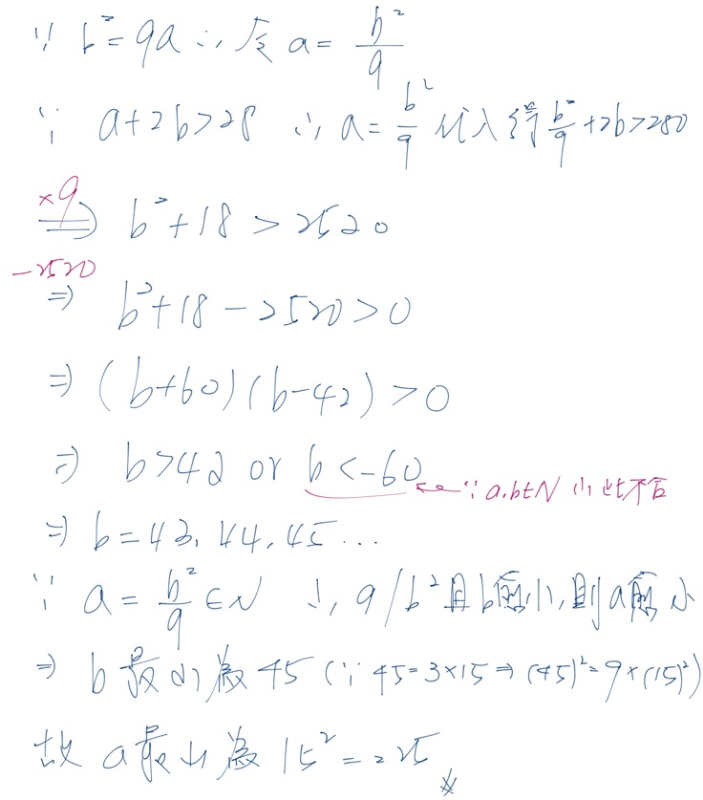 ∵ b²=9a ∴ 令 a = b²/9
∵ a+2b>28 ∴ a = b²/9 代入得 b²/9 +2b>280
×9
⇒ b²+18 > 2520
-2520
⇒ b²+18-2520>0
⇒ (b+60)(b-42) >0
⇒ b>42 or b<-60 ←∵a.b∈N ∴此不合
⇒ b=43, 44, 45...
∵ a = b²/9 ∈N ∴ 9/b² 且b愈小,則a愈小
⇒ b最小為45 (∵ 45=3×15 ⇒ (45)²=9×(15)²)
故 a最小為 15²=225